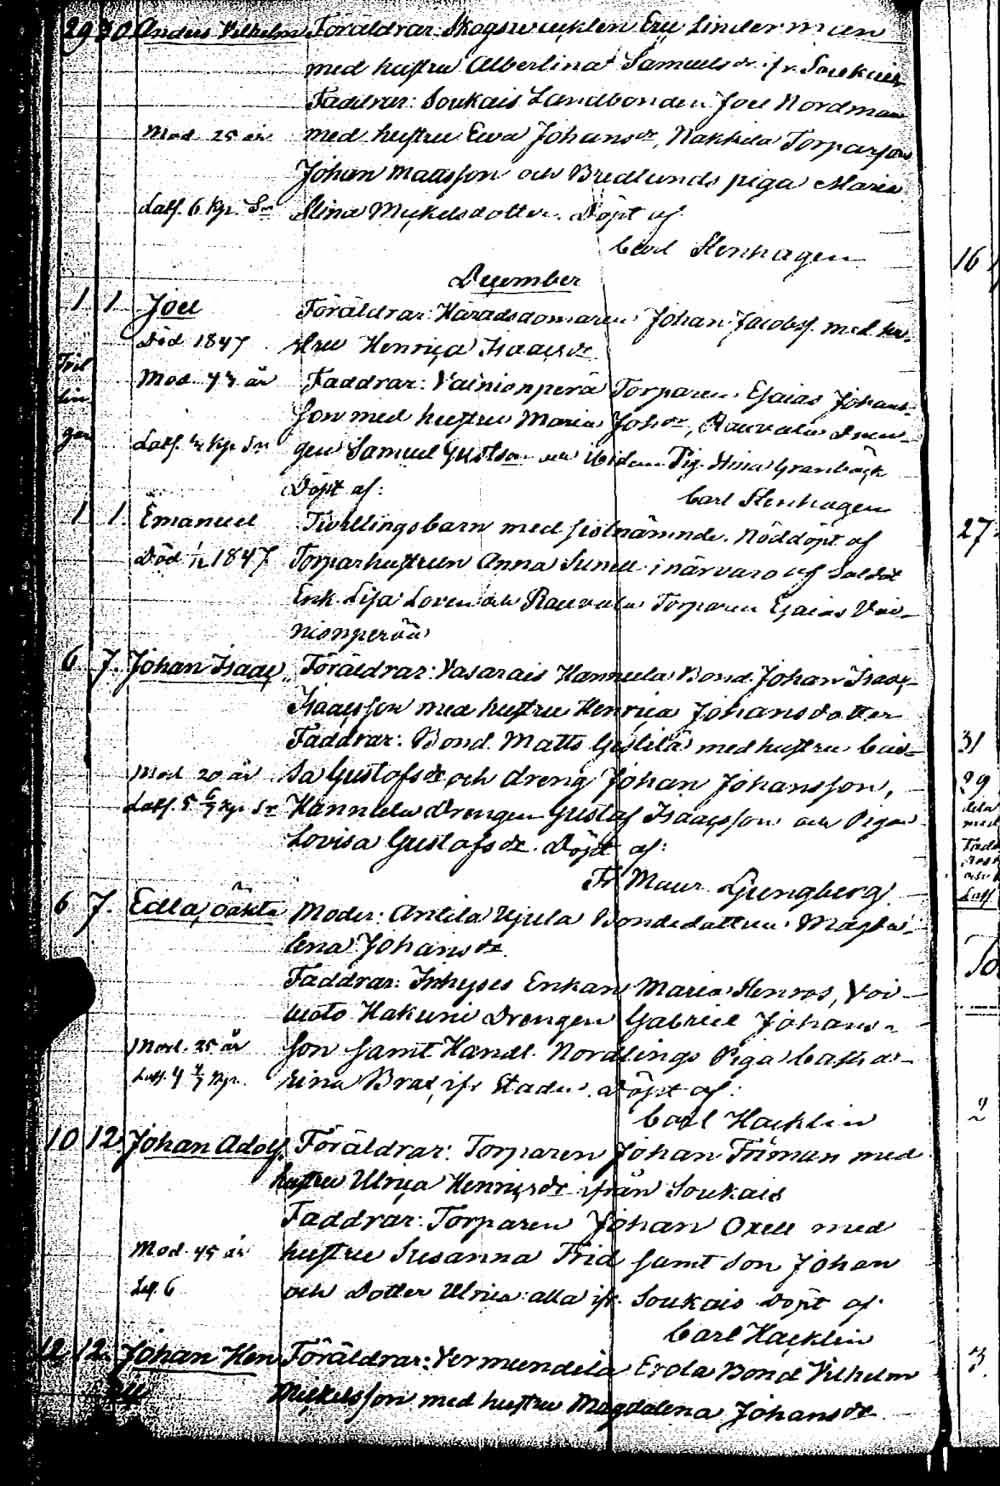 29 30 Anders Vilhelm Föräldrar: Skogswacktен Eric Linderman
med hustru Albertina Samuels dr. ifr. Soukais
Faddrar: Soukais Landbonden Joel Nordman
Mod. 25 år med hustru Ewa Johans dr, Nakkila Torparson
Johan Maasson och Bredlunds piga Maria
Latf. 6 Kp. Sn Stina Mickelsdotter. Döpt af
Carl Stenhagen
16
December
1 1 Joel Föräldrar: Häradsdomaren Johan Jacobss. med hu-
Död 1847 stru Henrica Isaacs dr
Tvil
Mod. 43 år Faddrar: Vainionperä Torparen Esaias Johans-
lin
son med hustru Maria Johs dr, Rauvala Dren-
gar
Latf. ½ Kp Sn gen Samuel Gustfson och Pig. Stina Granbäck
Döpt af: Carl Stenhagen
1 1 Emanuel Tvillingsbarn med sistnämnde. Nöddöpt af
27
Död 1/12 1847 Torparhustrun Anna Sunell i närvaro af Soldat
Enk. Lisa Loren och Rauvala Torparen Esaias Vai-
nionperää
6 7. Johan Isaac, Föräldrar: Vasarais Hannula Bond. Johan Isaac
Isaacsson med hustru Henrica Johansdotter
Faddrar: Bond. Matts med hustru Lui-
31
Mod. 20 år sa Gustafs dr och dreng Johan Johansson,
29
Latf. 5 Kp Sn Hannula Drengen Gustaf Isaacsson och Pigan
Lovisa Gustafs dr. Döpt af:
Fr. Maur. Ljungberg
6 7. Edla, oäkta Moder: Anttila Ujula Bondedottren Magda-
lena Johans dr.
Faddrar: Inhyses Enkan Maria Stenros, Voi-
luoto Hakuni Drengen Gabriel Johans-
Mod. 25 år son samt Handl. Nordlings Piga Catha-
Latf. 4 Kp. rina Brax ifr Staden. Döpt af:
Carl Hacklin
2
10 12. Johan Adolf. Föräldrar: Torparen Johan Friman med
hustru Ulrica Henrics dr ifrån Soukais
Faddrar: Torparen Johan Oxell med
Mod. 45 år hustru Susanna Frid samt Son Johan
Latf. 6 och Dotter Ulrica: alla ifr. Soukais Döpt af
Carl Hacklin
12 12. Johan Hen Föräldrar: Vermundila Erola Bond Vilhelm
3.
Mickelsson med hustru Magdalena Johans dr